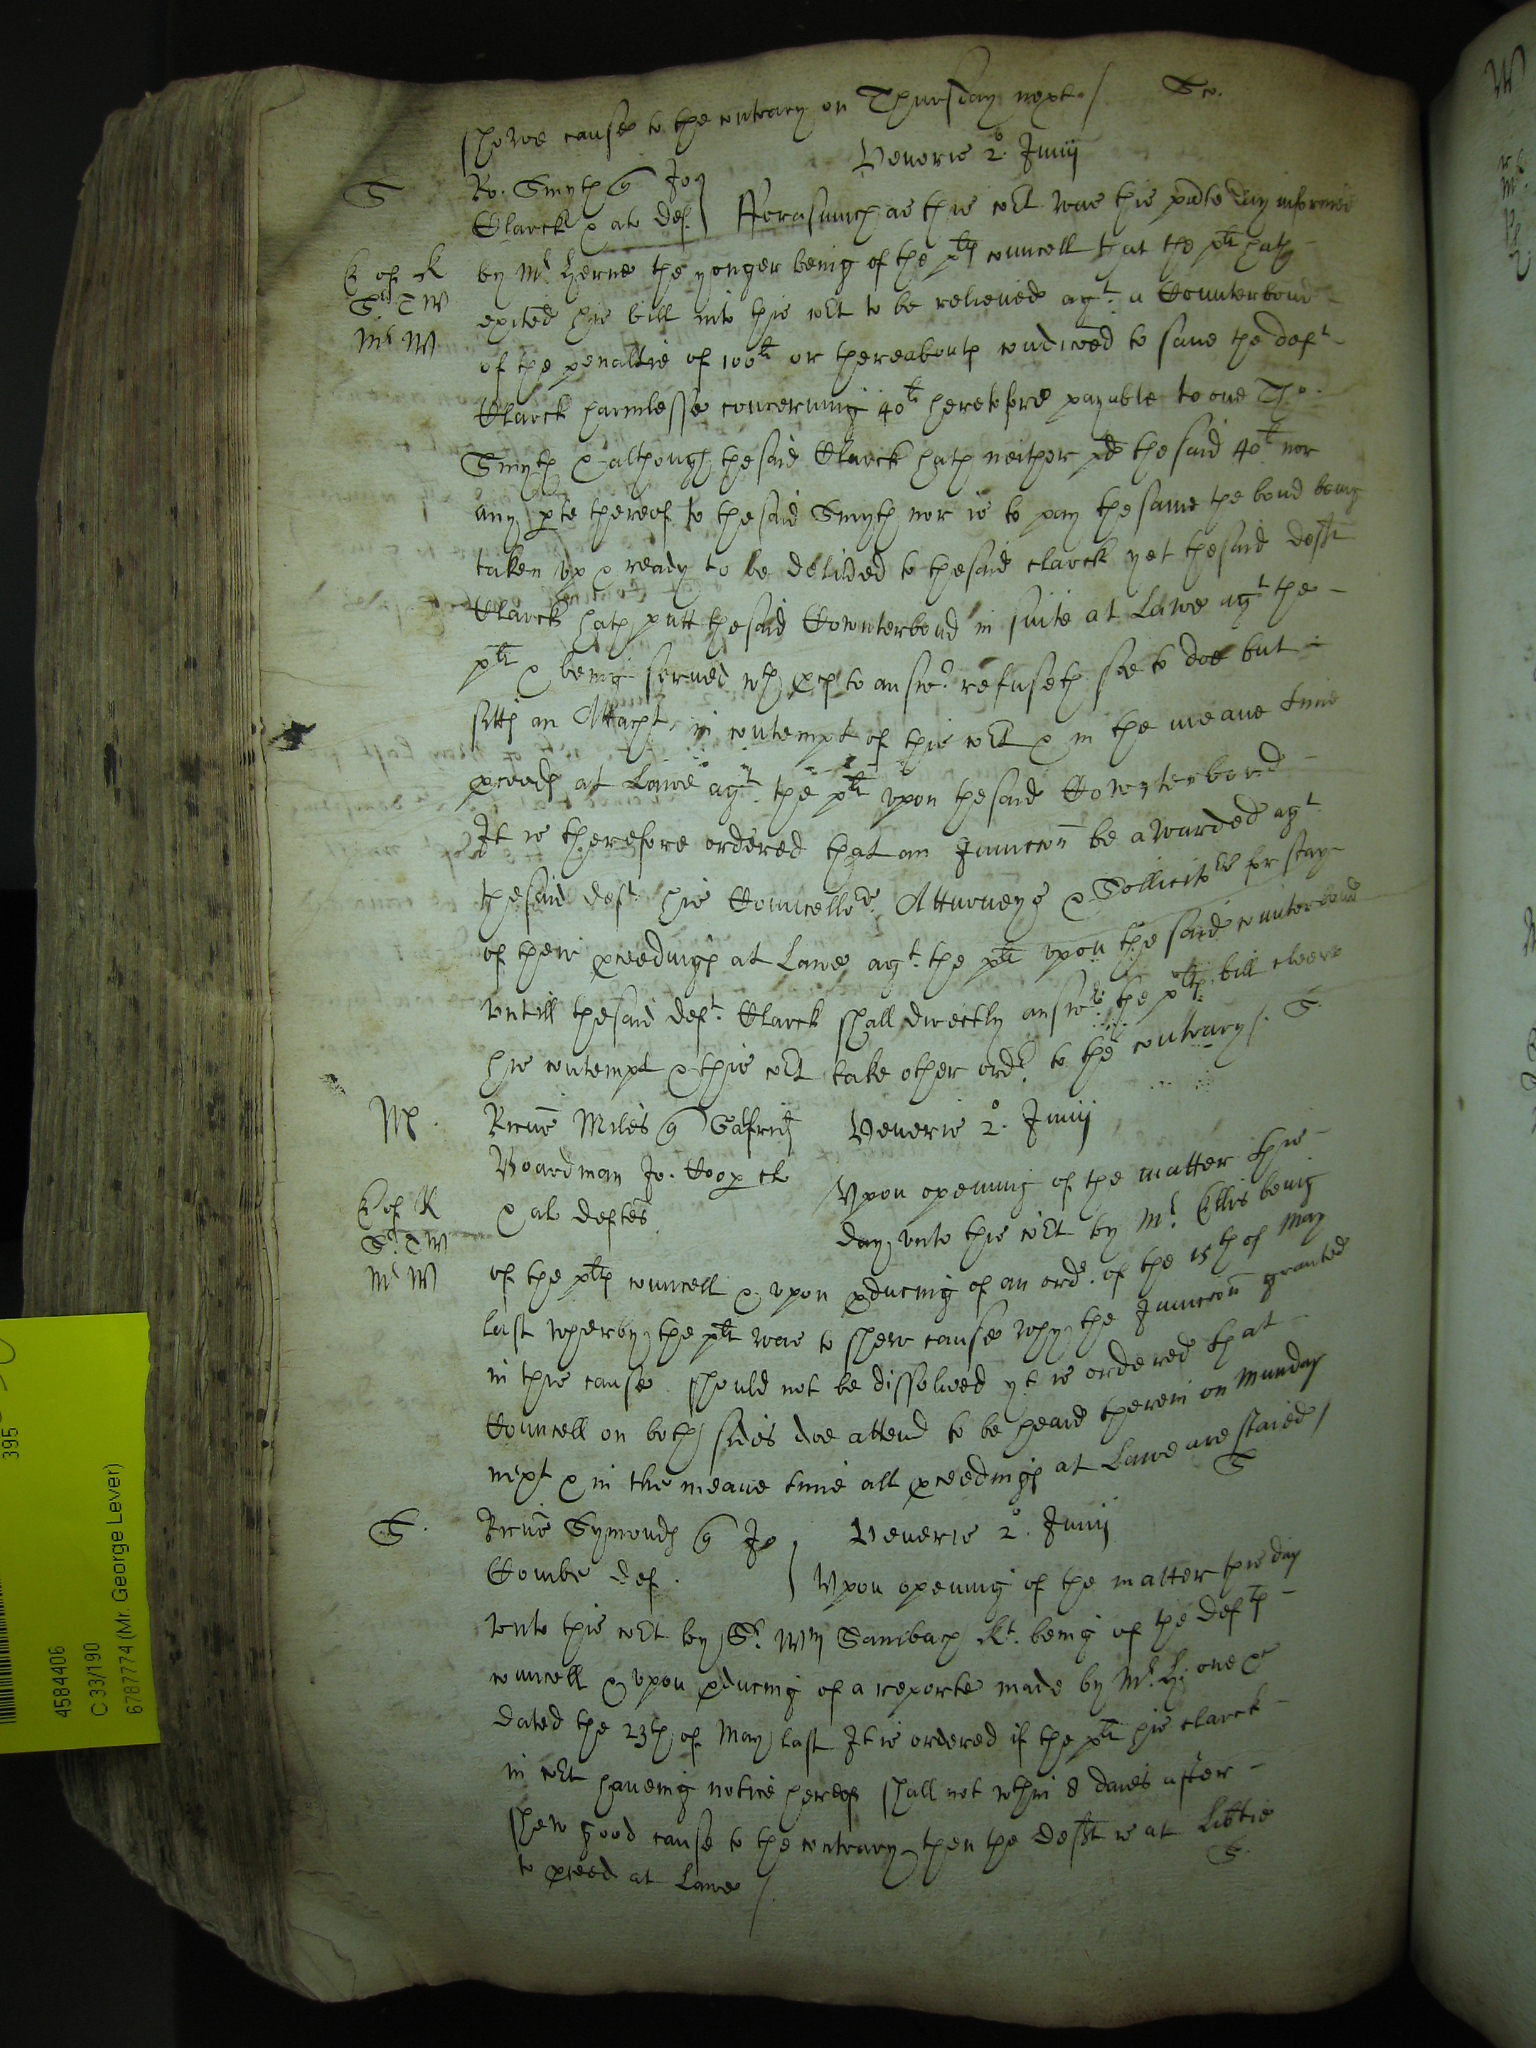 showe cause to the contrary on Thursday next./ Sco.
Veneris 2o. Junij
S Ro. Smyth q Jo
Clarck & al def. fforasmuch as this cort was this pnte day informed
E of K by Mr Herne the yonger being of the plts councell that the plt hath
Sr T W exited his bill into this cort to be relieved agt. a Counterbond
Mr W of the penaltie of 100li or thereabouts condiced to save the deft
Clarck harmlesse concerning 40li heretofore payable to one Tho.
Smyth & although the said Clarck hath neither pd the said 40li nor
any pte thereof to the said Smyth nor is to pay the same the bond being
taken up & ready to be delived to the said clarck yet the said deft
Clarck hath putt the said Counterbond in suite at Lawe agt the
plt & being served wth pces to answr refuseth soe to doe but
sitts an Attacht in contempt of this cort & in the meane time
pceeds at Lawe agt. the plt upon the said Counterbond
It is therefore ordered that an Junccon be awarded agt
the said deft. his Councellrs Atturneys & Sollicitrs for stay
of their pceedings at Lawe agt. the plt upon the said counterbond
untill the said deft. Clarck shall directly answr. the plts bill cleere
his contempt & this cort take other ordr to the contrary /. S.
M. Ricus Miles q Galfrid Veneris 2o. Junij
Boardman Jo. Cooper
& al deftes Upon opening of the matter this
E of K
Sr. T W day unto this cort by Mr. Ellis being
Mr W of the plts councell & upon pducing of an ordr. of the 15th of May
last wherby the plt was to shew cause why the Junccon granted
in this cause should not be dissolved yt is ordered that
Councell on both sides doe attend to be heard therein on Munday
next & in the meane time all pceedings at Lawe are staied /
S
S. Ricus Symonds q Jo Veneris 2o. Junij
Combe def. Upon opening of the matter this day
unto this cort by Sr. Wm Sambach Kt. being of the defts
councell & upon pducing of a reporte made by Mr. Hi one &c
dated the 23th of May last It is ordered if the plt his clarck
in cort haveing notice hereof shall not wthin 8 daies after
shew good cause to the contrary then the deft is at Libtie
to pceed at Lawe /. S.
395
4584406
C 33/190
6787774 (Mr. George Lever)